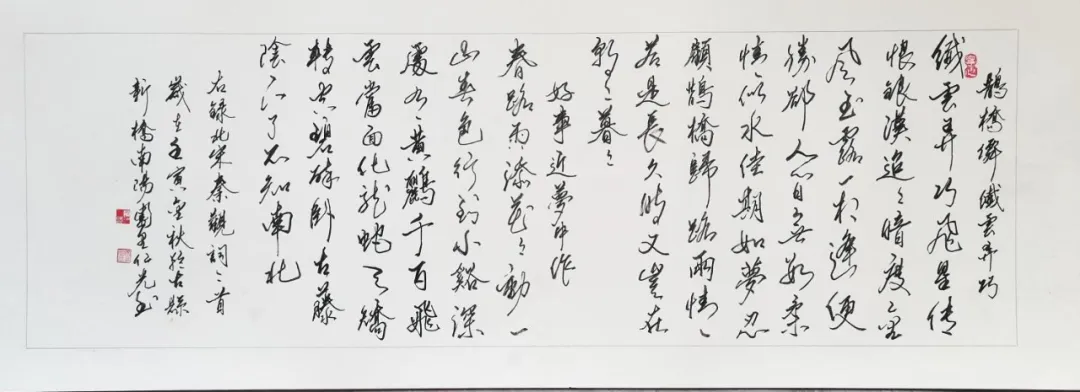 鵲橋僊纖雲弄巧
纖雲弄巧飛星傳
恨銀漢迢〻暗度金
風玉露一相逢便
勝卻人間無數柔
情似水佳期如夢忍
顧鵲橋歸路兩情〻
若是長久時又豈在
朝〻暮〻
好事近夢中作
春路雨添花〻動一
山春色行到小谿深
處有黃鸝千百飛
雲當面化龍蛇夭矯
轉空碧醉臥古藤
陰下了不知南北
右錄北宋秦觀詞二首
歲在壬寅金秋於古縣
新橋南陽